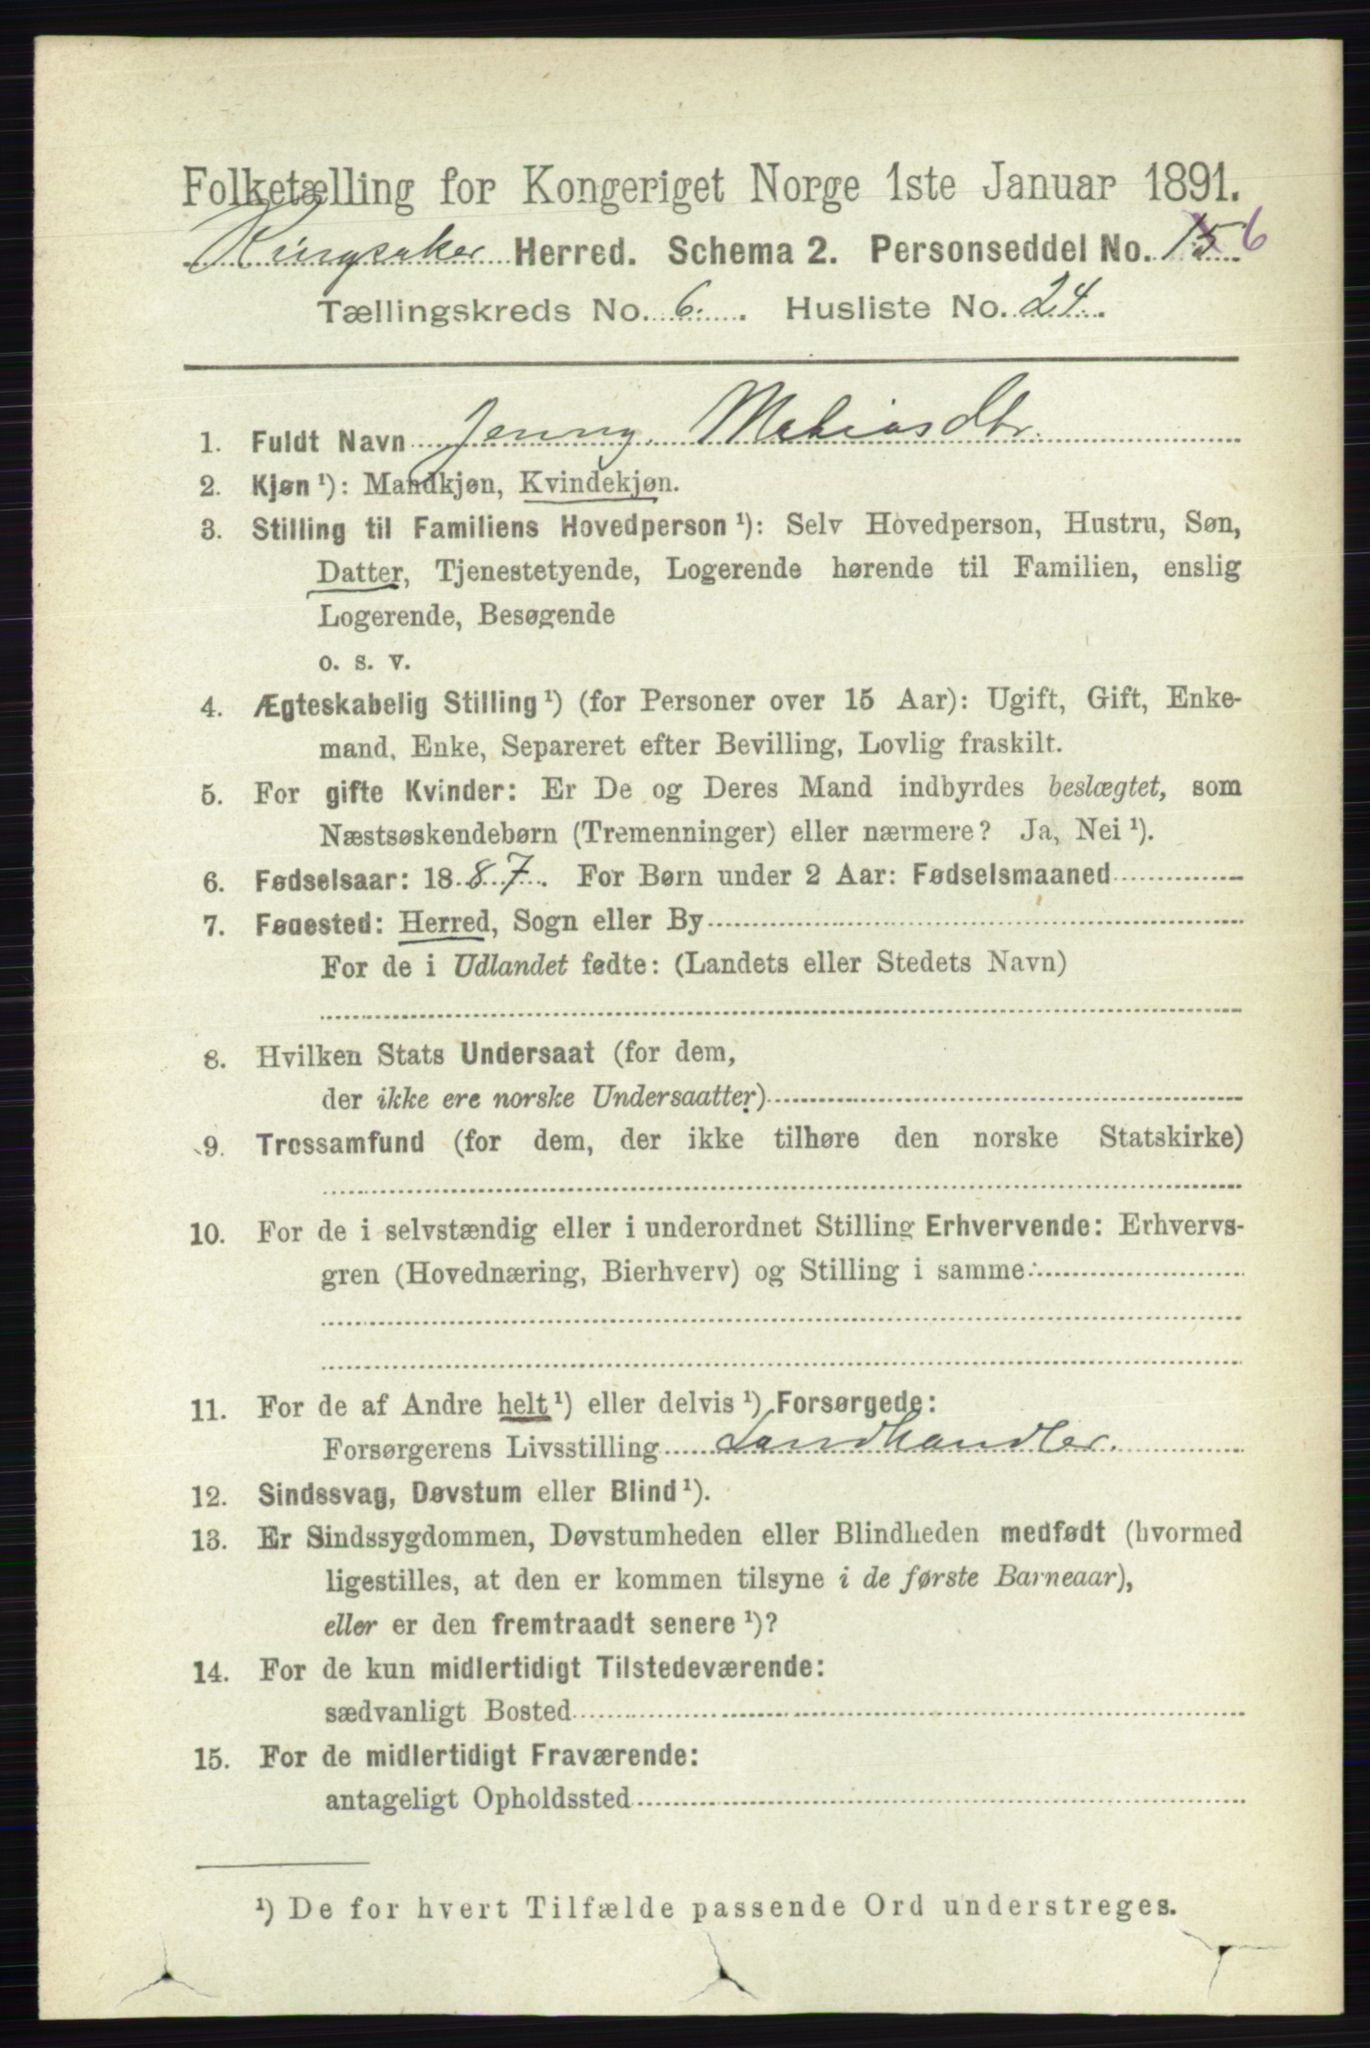 Folketælling for Kongeriget Norge 1ste Januar 1891.
Ringsaker Herred. Schema 2. Personseddel No. 156
Tællingskreds No. 6. Husliste No. 24.
1. Fuldt Navn Jenny Matiasdtr.
2. Kjøn ¹): Mandkjøn, Kvindekjøn.
3. Stilling til Familiens Hovedperson ¹): Selv Hovedperson, Hustru, Søn,
Datter, Tjenestetyende, Logerende hørende til Familien, enslig
Logerende, Besøgende
o. s. v.
4. Ægteskabelig Stilling ¹) (for Personer over 15 Aar): Ugift, Gift, Enke-
mand, Enke, Separeret efter Bevilling, Lovlig fraskilt.
5. For gifte Kvinder: Er De og Deres Mand indbyrdes beslægtet, som
Næstsøskendebørn (Tremenninger) eller nærmere? Ja, Nei ¹).
6. Fødselsaar: 1887. For Børn under 2 Aar: Fødselsmaaned
7. Fødested: Herred, Sogn eller By
For de i Udlandet fødte: (Landets eller Stedets Navn)
8. Hvilken Stats Undersaat (for dem,
der ikke ere norske Undersaatter)
9. Trossamfund (for dem, der ikke tilhøre den norske Statskirke)
10. For de i selvstændig eller i underordnet Stilling Erhvervende: Erhvervs-
gren (Hovednæring, Bierhverv) og Stilling i samme:
11. For de af Andre helt ¹) eller delvis ¹) Forsørgede:
Forsørgerens Livsstilling Landhandler.
12. Sindssvag, Døvstum eller Blind ¹).
13. Er Sindssygdommen, Døvstumheden eller Blindheden medfødt (hvormed
ligestilles, at den er kommen tilsyne i de første Barneaar),
eller er den fremtraadt senere ¹)?
14. For de kun midlertidigt Tilstedeværende:
sædvanligt Bosted
15. For de midlertidigt Fraværende:
antageligt Opholdssted
¹) De for hvert Tilfælde passende Ord understreges.